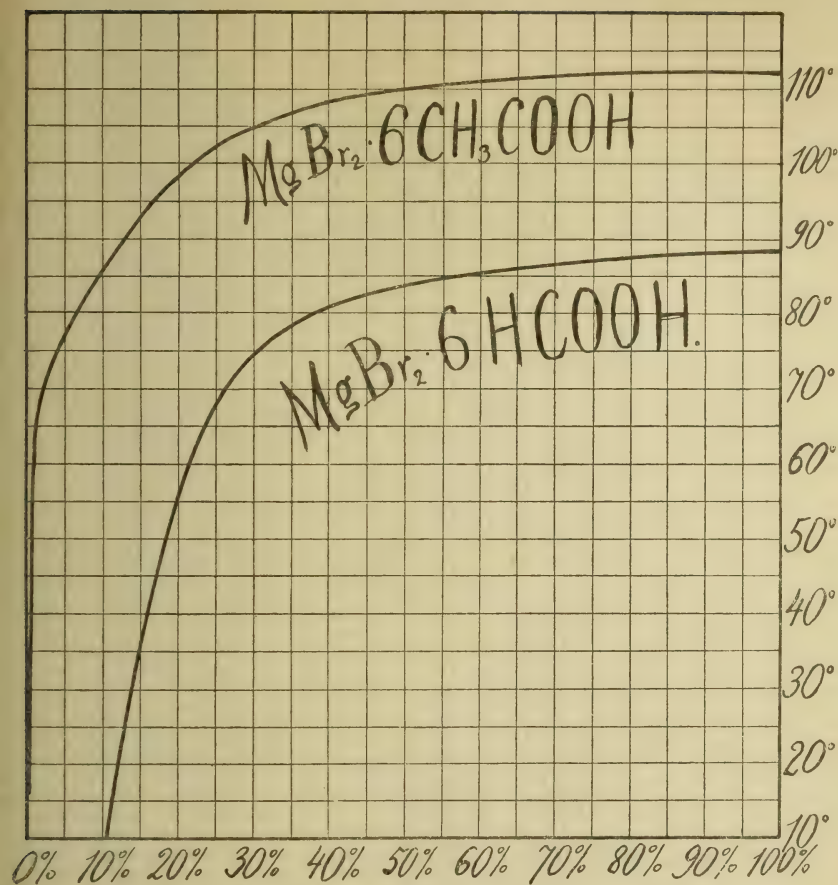 MgBr₂·6CH₃COOH
MgBr₂·6HCOOH.
110°
100°
90°
80°
70°
60°
50°
40°
30°
20°
10°
0% 10% 20% 30% 40% 50% 60% 70% 80% 90% 100%